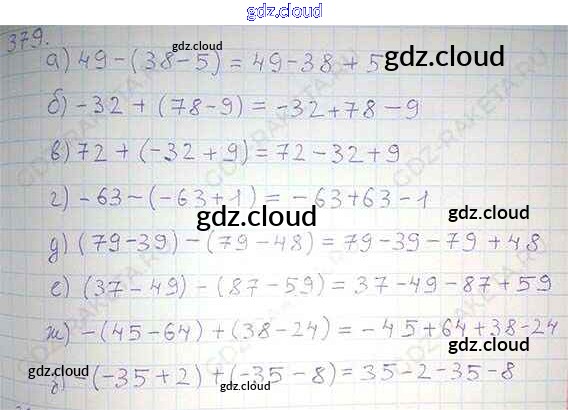 gdz.cloud
379.
gdz.cloud
gdz.cloud
а) 49 - (38 - 5) = 49 - 38 + 5
б) -32 + (78 - 9) = -32 + 78 - 9
в) 72 + (-32 + 9) = 72 - 32 + 9
г) -63 - (-63 + 1) = -63 + 63 - 1
gdz.cloud
д) (79 - 39) - (79 - 48) = 79 - 39 - 79 + 48
е) (37 - 49) - (87 - 59) = 37 - 49 - 87 + 59
gdz.cloud
ж) -(45 - 64) + (38 - 24) = -45 + 64 + 38 - 24
з) -(-35 + 2) + (-35 - 8) = 35 - 2 - 35 - 8
gdz.cloud
gdz.cloud
gdz.cloud